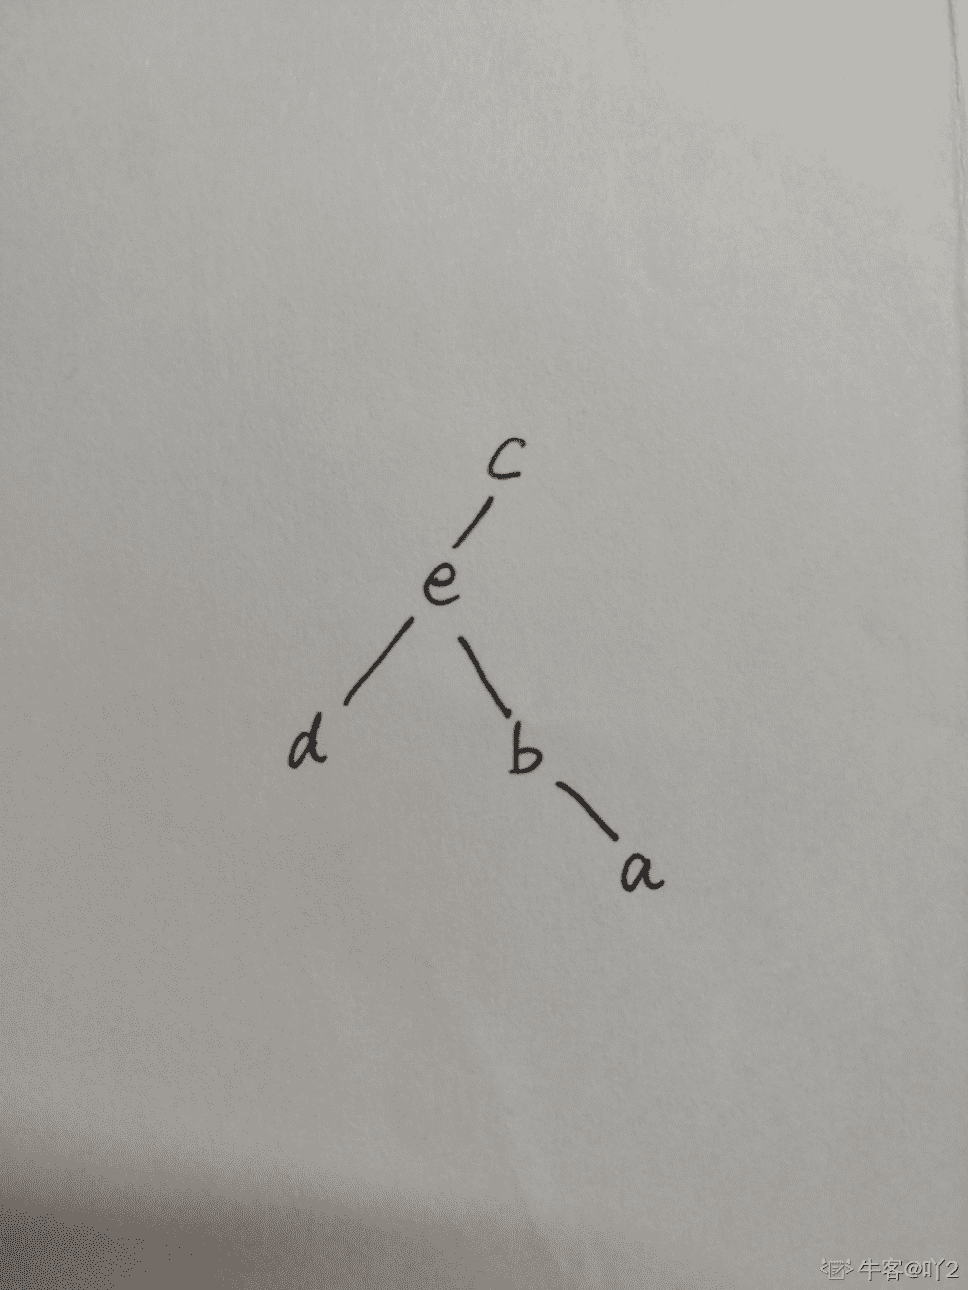 c
e
d b
a
牛客@吖2